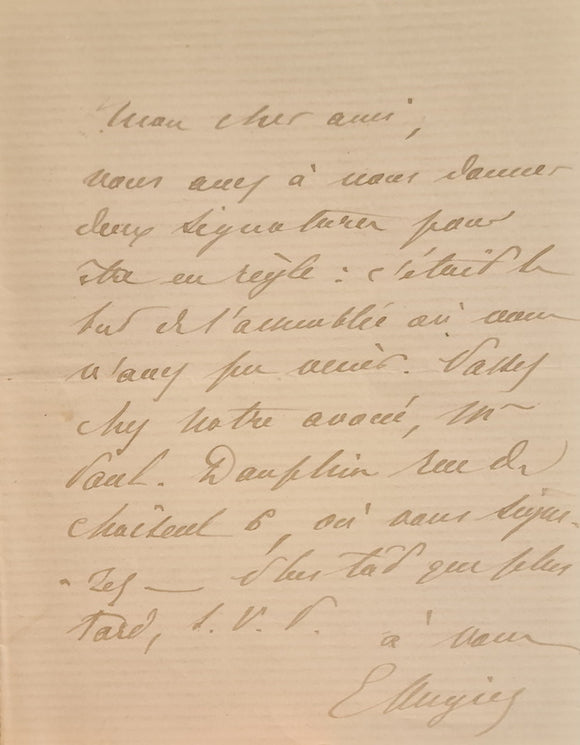 Mon cher ami,
vous avez à nous donner
deux signatures pour
être en règle : c'était le
but de l'assemblée où vous
n'avez pu venir. Passez
chez notre avoué, Mr
Paul. Dauphin rue de
Choiseul 6, où vous signe-
-rez — Plus tôt que plus
tard, S. V. P.
à vous
E Augier